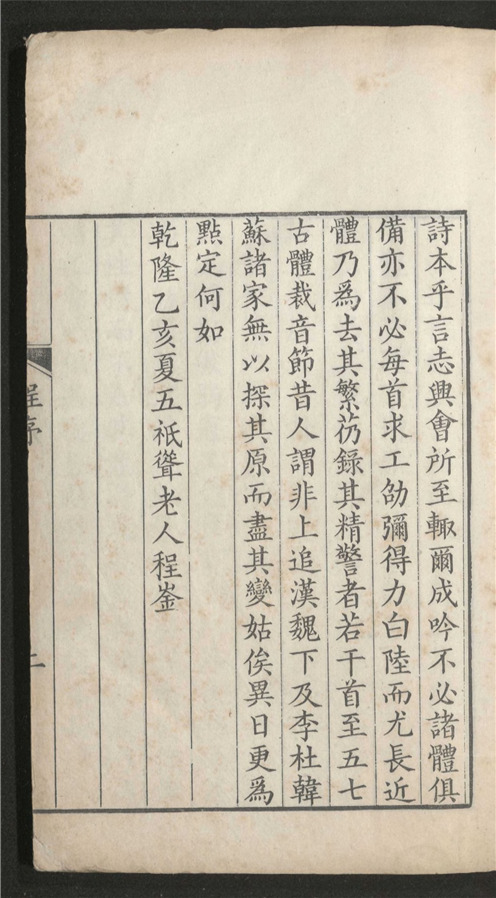 詩本乎言志興會所至輙爾成吟不必諸體俱
備亦不必每首求工劬彌得力白陸而尤長近
體乃爲去其繁芿錄其精警者若干首至五七
古體裁音節昔人謂非上追漢魏下及李杜韓
蘇諸家無以探其原而盡其變姑俟異日更爲
點定何如
乾隆乙亥夏五祇聳老人程崟
程序
二